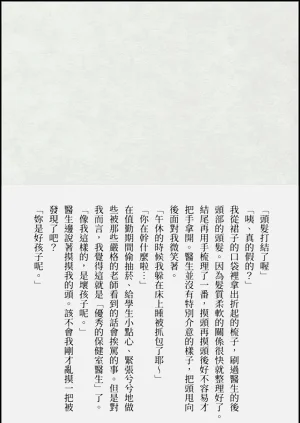 「頭髮打結了喔」
「咦、真的假的？」
我從裙子的口袋裡拿出折起的梳子，刷過醫生的後
頭部的頭髮。因為髮質柔軟的關係很快就整理好了。
結尾再用手梳理了一番，摸頭再摸頭後好不容易才
把手拿開。醫生並沒有特別介意的樣子，把頭甩向
後面對我微笑著。
「午休的時候我躲在床上睡被抓包了耶～」
「你在幹什麼啦…」
在值勤期間偷抽菸、給學生小點心、緊張兮兮地做
些被那些嚴格的老師看到的話會挨罵的事。但是對
我而言，我覺得這就是「優秀的保健室醫生」了。
「像我這樣的，是壞孩子呢。」
醫生邊說著摸摸我的頭。該不會我剛才亂摸一把被
發現了吧？
「妳是好孩子呢。」